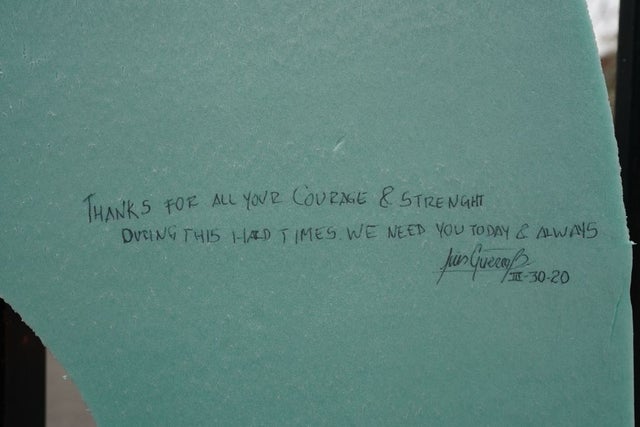 THANKS FOR ALL YOUR COURAGE & STRENGHT
DURING THIS HARD TIMES. WE NEED YOU TODAY & ALWAYS
III-30-20